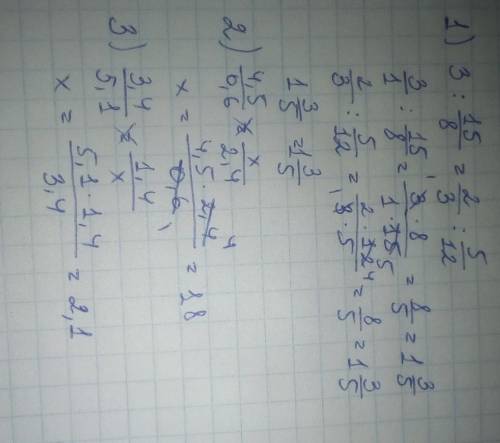 1) 3 : 15/8 = 2/3 : 5/12
3/1 : 15/8 = 3·8/1·15 5 = 8/5 = 1 3/5
2/3 : 5/12 = 2·12 4/1 3·5 = 8/5 = 1 3/5
1 3/5 = 1 3/5
2) 4,5/0,6 = x/2,4
x = 4,5·2,4 4/0,6 1 = 18
3) 3,4/5,1 = 1,4/x
x = 5,1·1,4/3,4 = 2,1